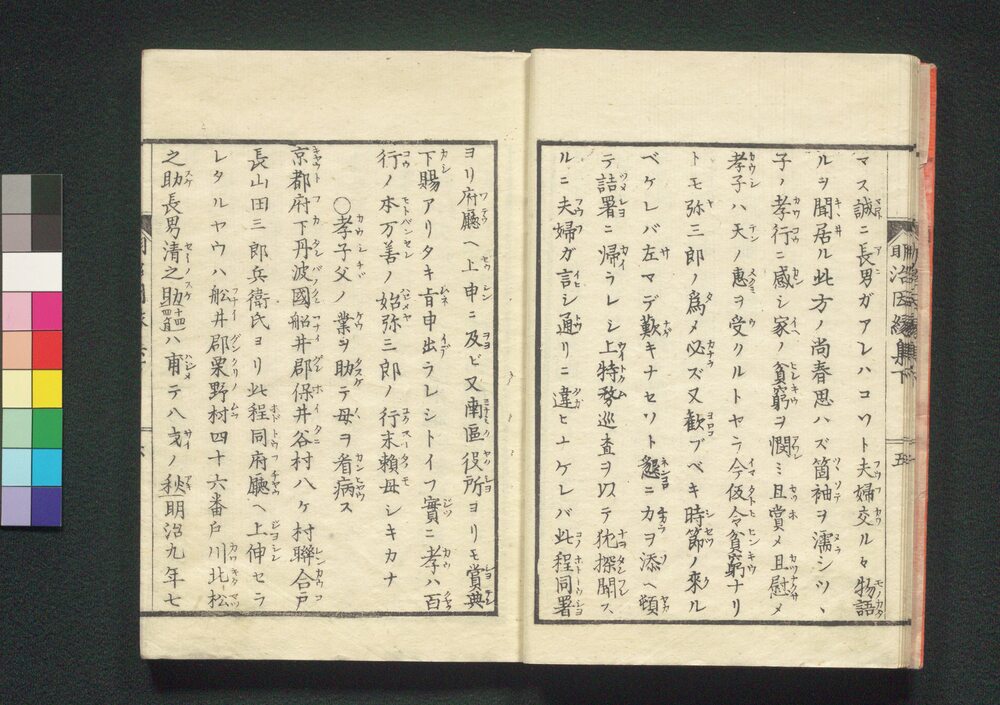 マス誠ニ長男ガアレハコソト夫婦交ル々物語
ルヲ聞居ル此方ノ尚春思ハズ筒袖ヲ濡シツヽ
子ノ孝行ニ感シ家ノ貧窮ヲ憫ミ且賞メ且慰メ
孝子ハ天ノ惠ヲ受クルトヤラ今仮令貧窮ナリ
トモ弥三郎ノ為メ必ズ又歓ブベキ時節ノ來ル
ベケレバ左マデ歎キナセソト懇ニカヲ添ヘ頓
テ詰署ニ帰ラレシ上特務巡査ヲ以テ猶探聞ス
ルニ夫婦ガ言シ通リニ違ヒナケレバ此程同署
五
ヨリ府廳ヘ上申ニ及ビ又南區役所ヨリモ賞典
下賜アリタキ旨申出ラレシトイフ實ニ孝ハ百
行ノ本万善ノ始弥三郎ノ行末頼母シキカナ
○孝子父ノ業ヲ助テ母ヲ看病ス
京都府下丹波國船井郡保井谷村八ケ村聯合戸
長山田三郎兵衛氏ヨリ此程同府廳ヘ上伸セラ
レタルヤウハ舩井郡栗野村四十六番戸川北松
之助長男清之助ハ甫テ八才ノ秋明治九年七